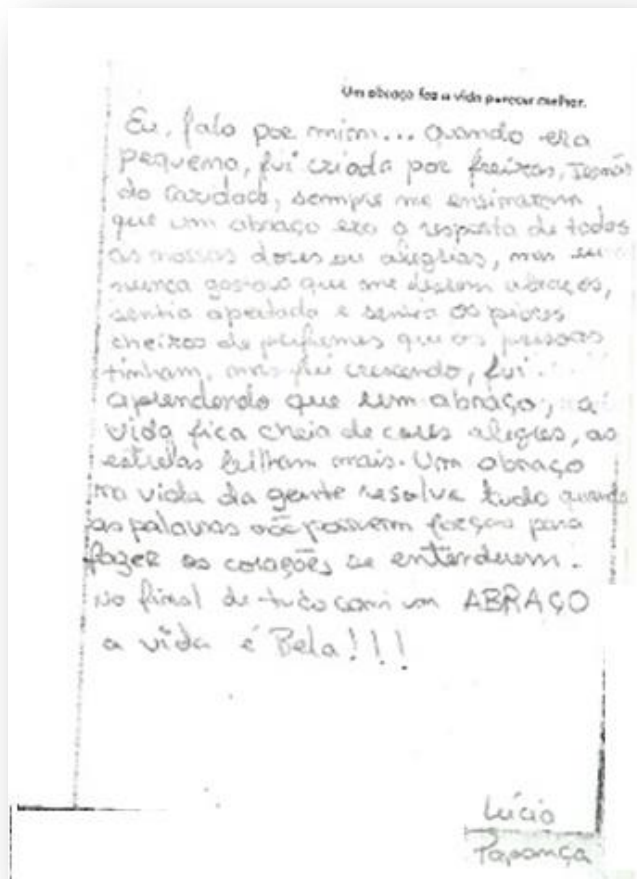 Um abraço faz a vida parecer melhor.
Eu, falo por mim... quando era
pequena, fui criada por freiras, Irmãs
do Cardoco, sempre me ensinaram
que um abraço era a resposta de todas
as nossas dores ou alegrias, mas eu
nunca gostava que me dessem abraços,
sentia apertada e sentia os piores
cheiros de perfumes que as pessoas
tinham, mas fui crescendo, fui
aprendendo que um abraço, a
vida fica cheia de cores alegres, as
estrelas brilham mais. Um abraço
na vida da gente resolve tudo quando
as palavras não possuem forças para
fazer os corações se entenderem.
No final de tudo com um ABRAÇO
a vida é Bela!!!
Lúcia
Papança